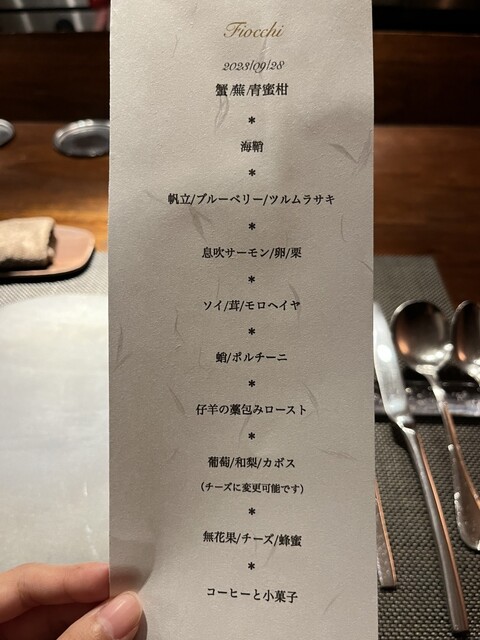 Fiocchi
2023/09/28
蟹/蕪/青蜜柑
*
海鞘
*
帆立/ブルーベリー/ツルムラサキ
*
息吹サーモン/卵/栗
*
ソイ/茸/モロヘイヤ
*
蛸/ポルチーニ
*
仔羊の藁包みロースト
*
葡萄/和梨/カボス
(チーズに変更可能です)
*
無花果/チーズ/蜂蜜
*
コーヒーと小菓子